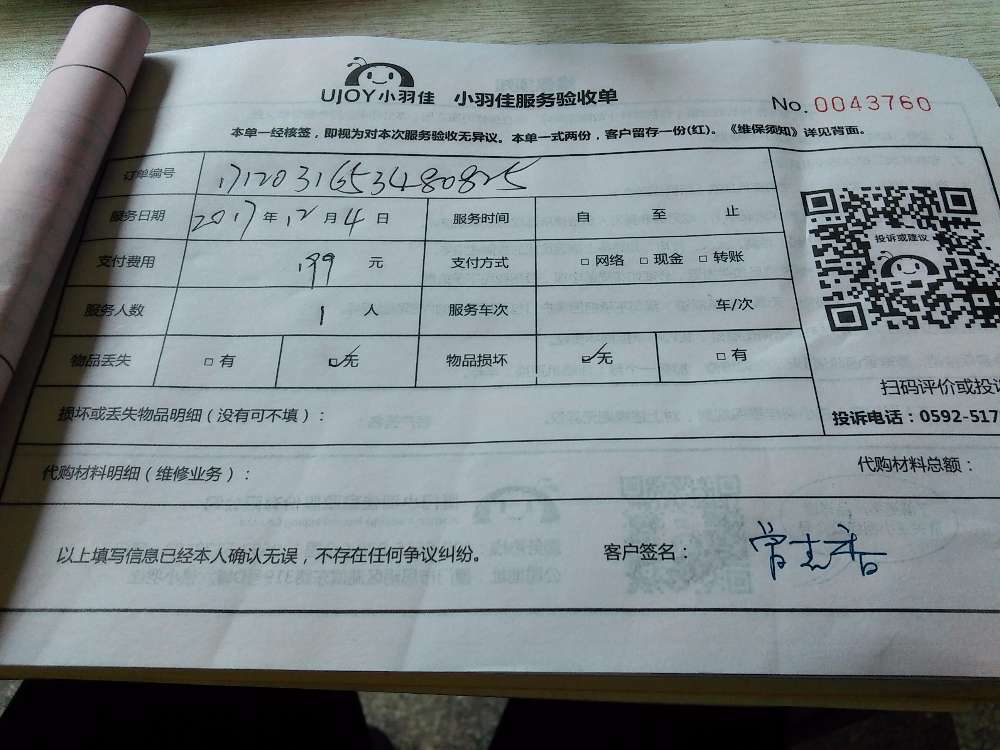 UJOY小羽佳 小羽佳服务验收单
No. 0043760
本单一经核签，即视为对本次服务验收无异议。本单一式两份，客户留存一份(红)。《维保须知》详见背面。
订单编号 1712031653480825
服务日期 2017年 12月 4日 服务时间 自 至 止
支付费用 199 元 支付方式 □ 网络 □ 现金 □ 转账
服务人数 1 人 服务车次 车/次
物品丢失 □ 有 ☑无 物品损坏 ☑无 □ 有
投诉或建议
扫码评价或投诉
投诉电话：0592-517
损坏或丢失物品明细（没有可不填）：
代购材料明细（维修业务）： 代购材料总额：
以上填写信息已经本人确认无误，不存在任何争议纠纷。 客户签名：